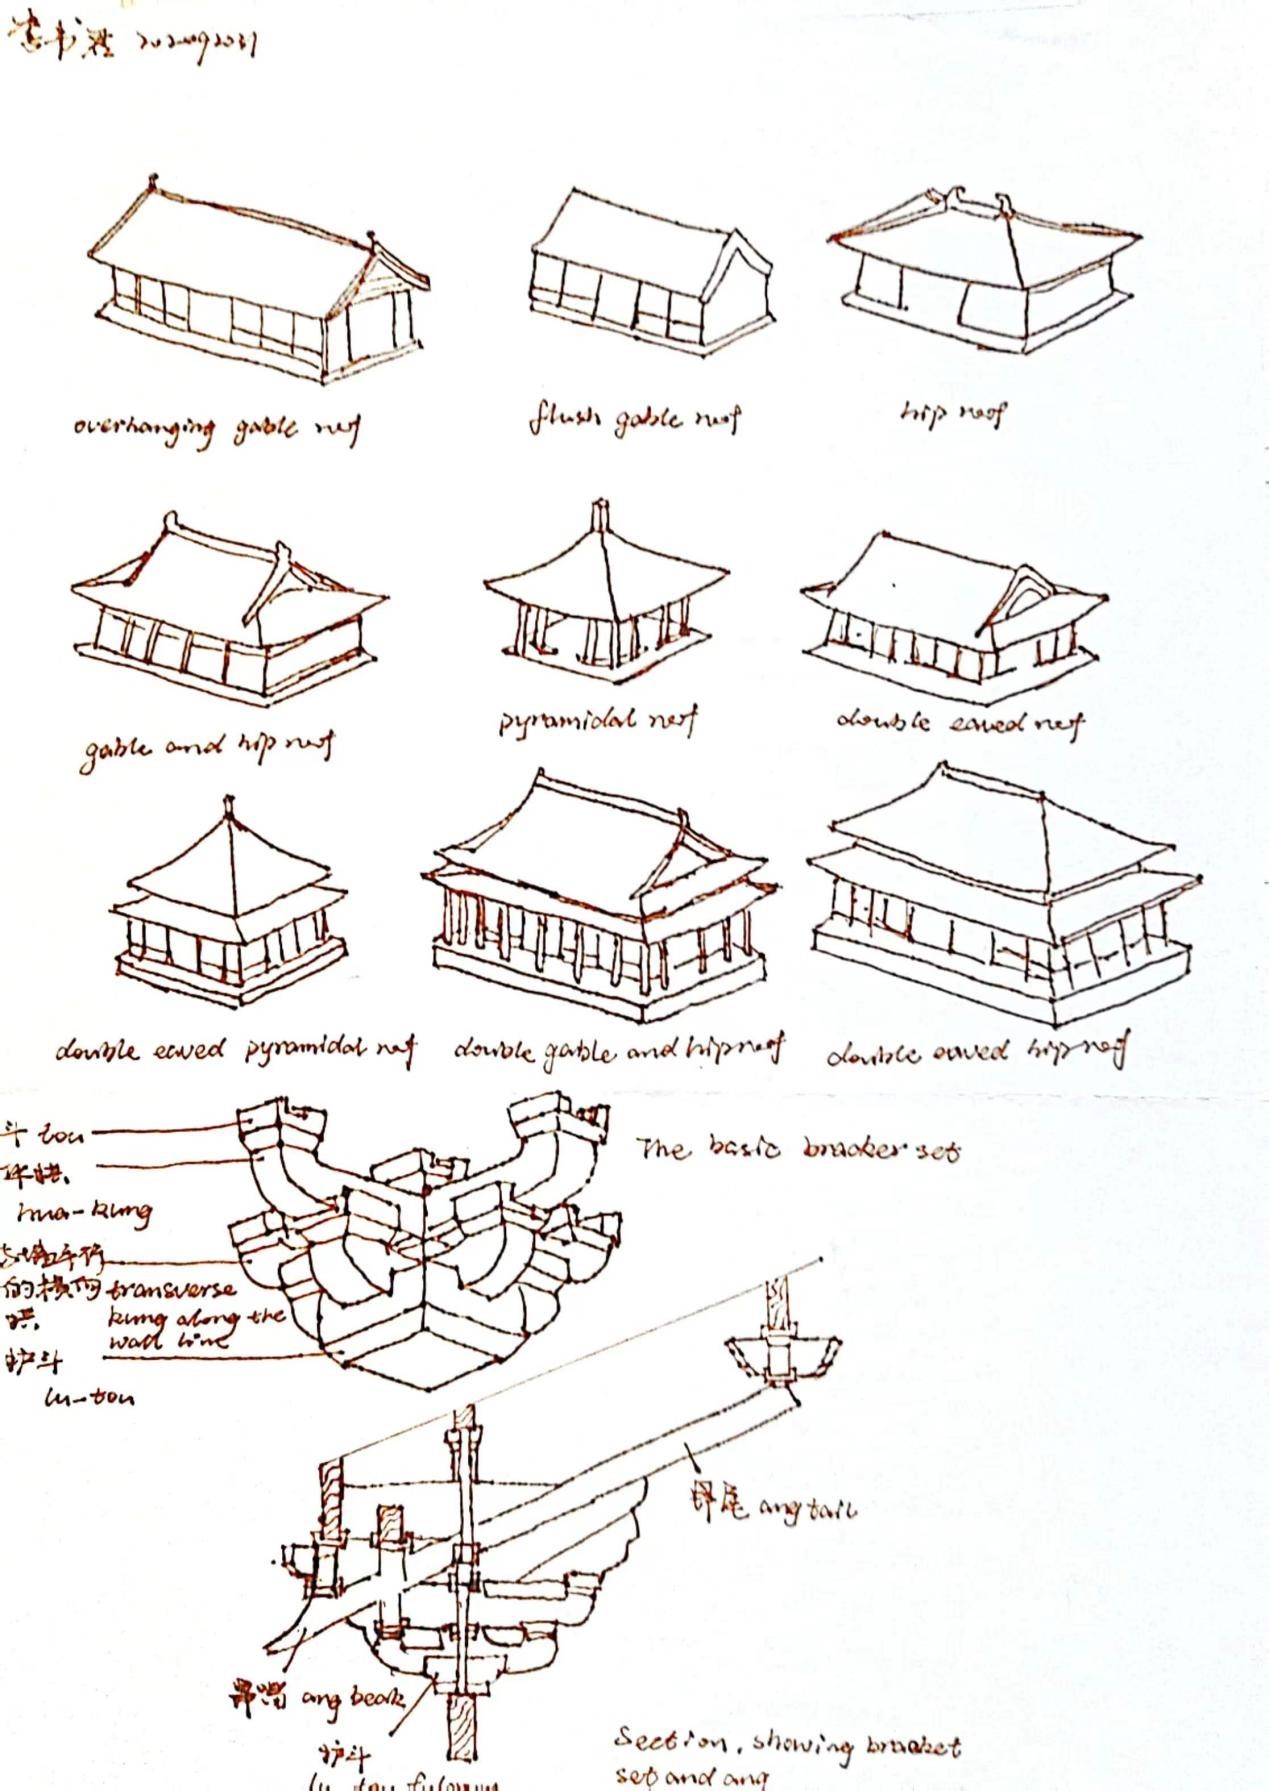 overhanging gable roof
flush gable roof
hip roof
gable and hip roof
pyramidal roof
double eaved roof
double eaved pyramidal roof
double gable and hip roof
double eaved hip roof
The basic bracker set
斗 tou
华拱.
hua-kung
的横向 transverse
拱. kung along the
wall line
护斗
lu-tou
昂尾 ang tail
昂嘴 ang beak
护斗
Section, showing bracket
set and ang